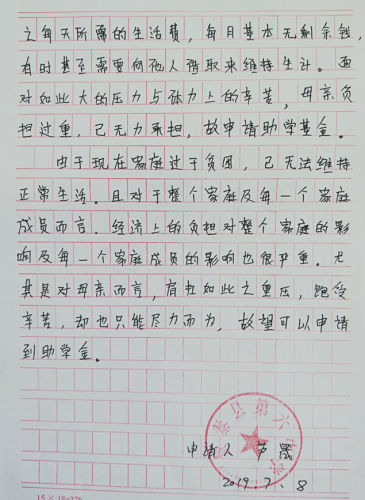 之每天所需的生活费，每月基本无剩余钱，
有时甚至需要向他人借取来维持生计。面
对如此大的压力与体力上的辛苦，母亲负
担过重，已无力承担，故申请助学基金。
由于现在家庭过于贫困，已无法维持
正常生活。且对于整个家庭及每一个家庭
成员而言，经济上的负担对整个家庭的影
响及每一个家庭成员的影响也很严重。尤
其是对母亲而言，肩扛如此之重压，饱受
辛苦，却也只能尽力而为，故望可以申请
到助学金。
秦县第六
申请人 芦晟
2019.7.8
15×18=270